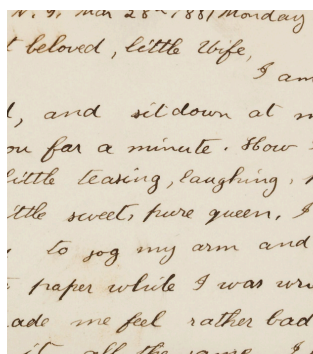 N. Y. Mar 28th 1881 Monday
t beloved, little Wife,
I am
d, and sit down at m
ou for a minute. How
little teasing, laughing,
ittle sweet, pure queen, I
to jog my arm and
paper while I was wri
ade me feel rather bad
it all the same. I